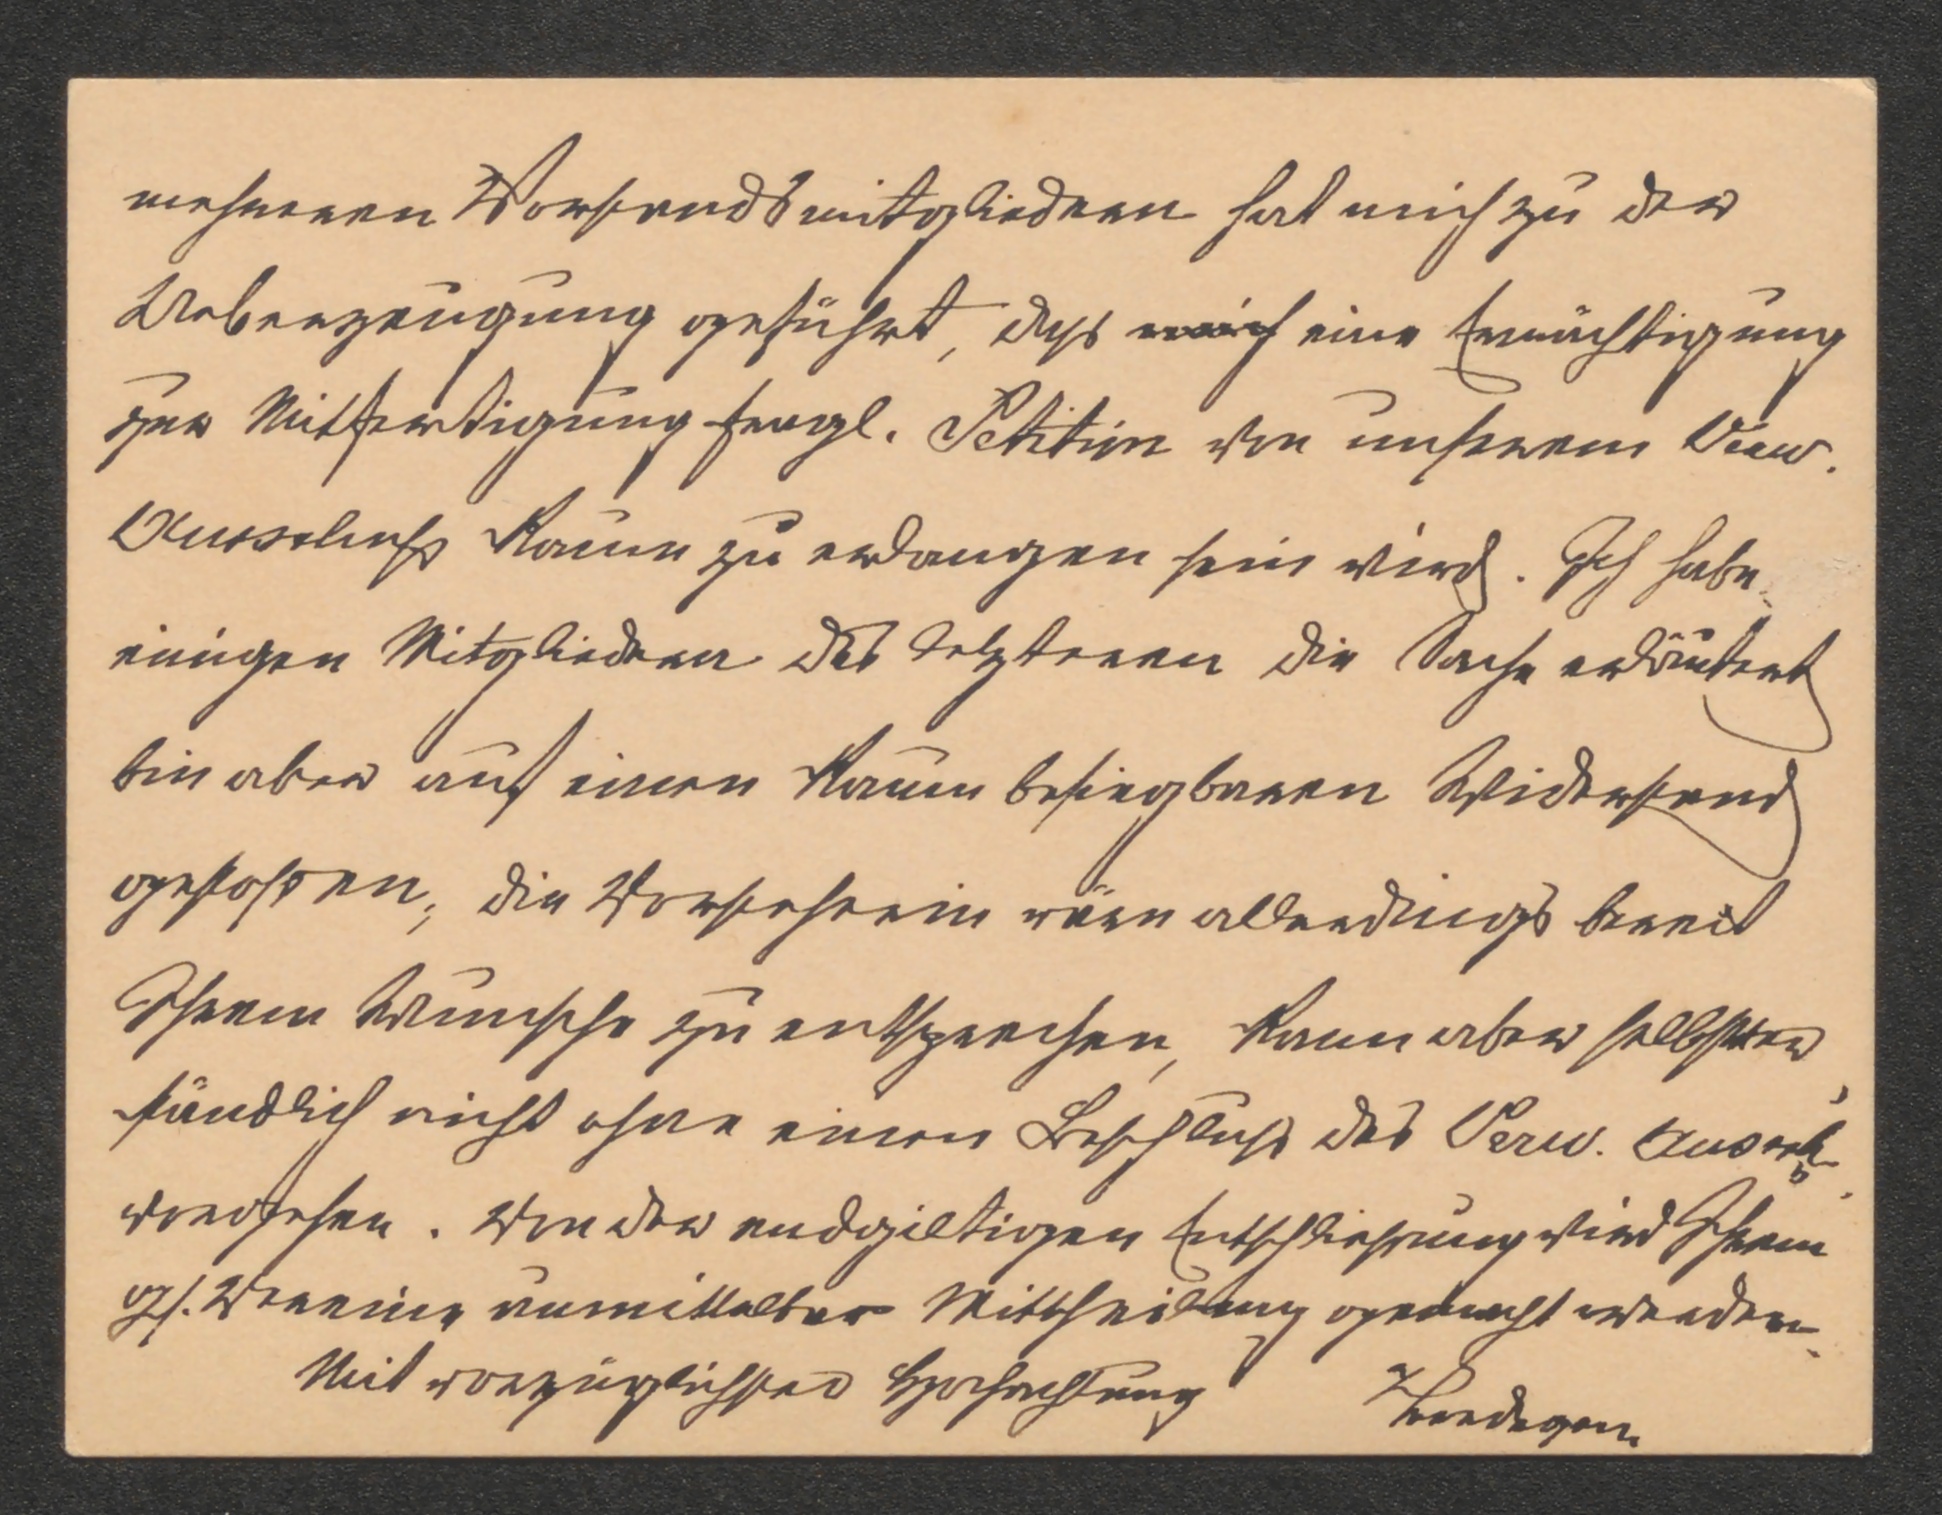 mehreren Vorstandsmitgliedern hat mich zu der
Ueberzeugung geführt, daß eine Ermächtigung
zur Mitfertigung fragl. Petition von unserem Verw.
Ausschuß kaum zu erlangen sein wird. Ich habe
einigen Mitgliedern des letzteren die Sache erläutert
bin aber auf einen kaum besiegbaren Widerstand
gestoßen; die Vorsteherin wäre allerdings bereit
Ihrem Wunsche zu entsprechen, kann aber selbstver
ständlich nicht ohne einen Beschluß des Verw. Aussch.
vorgehen. Von der endgiltigen Entschließung wird Ihrem
gf. Vereine unmittelbar Mittheilung gemacht werden.
Mit vorzüglichster Hochachtung